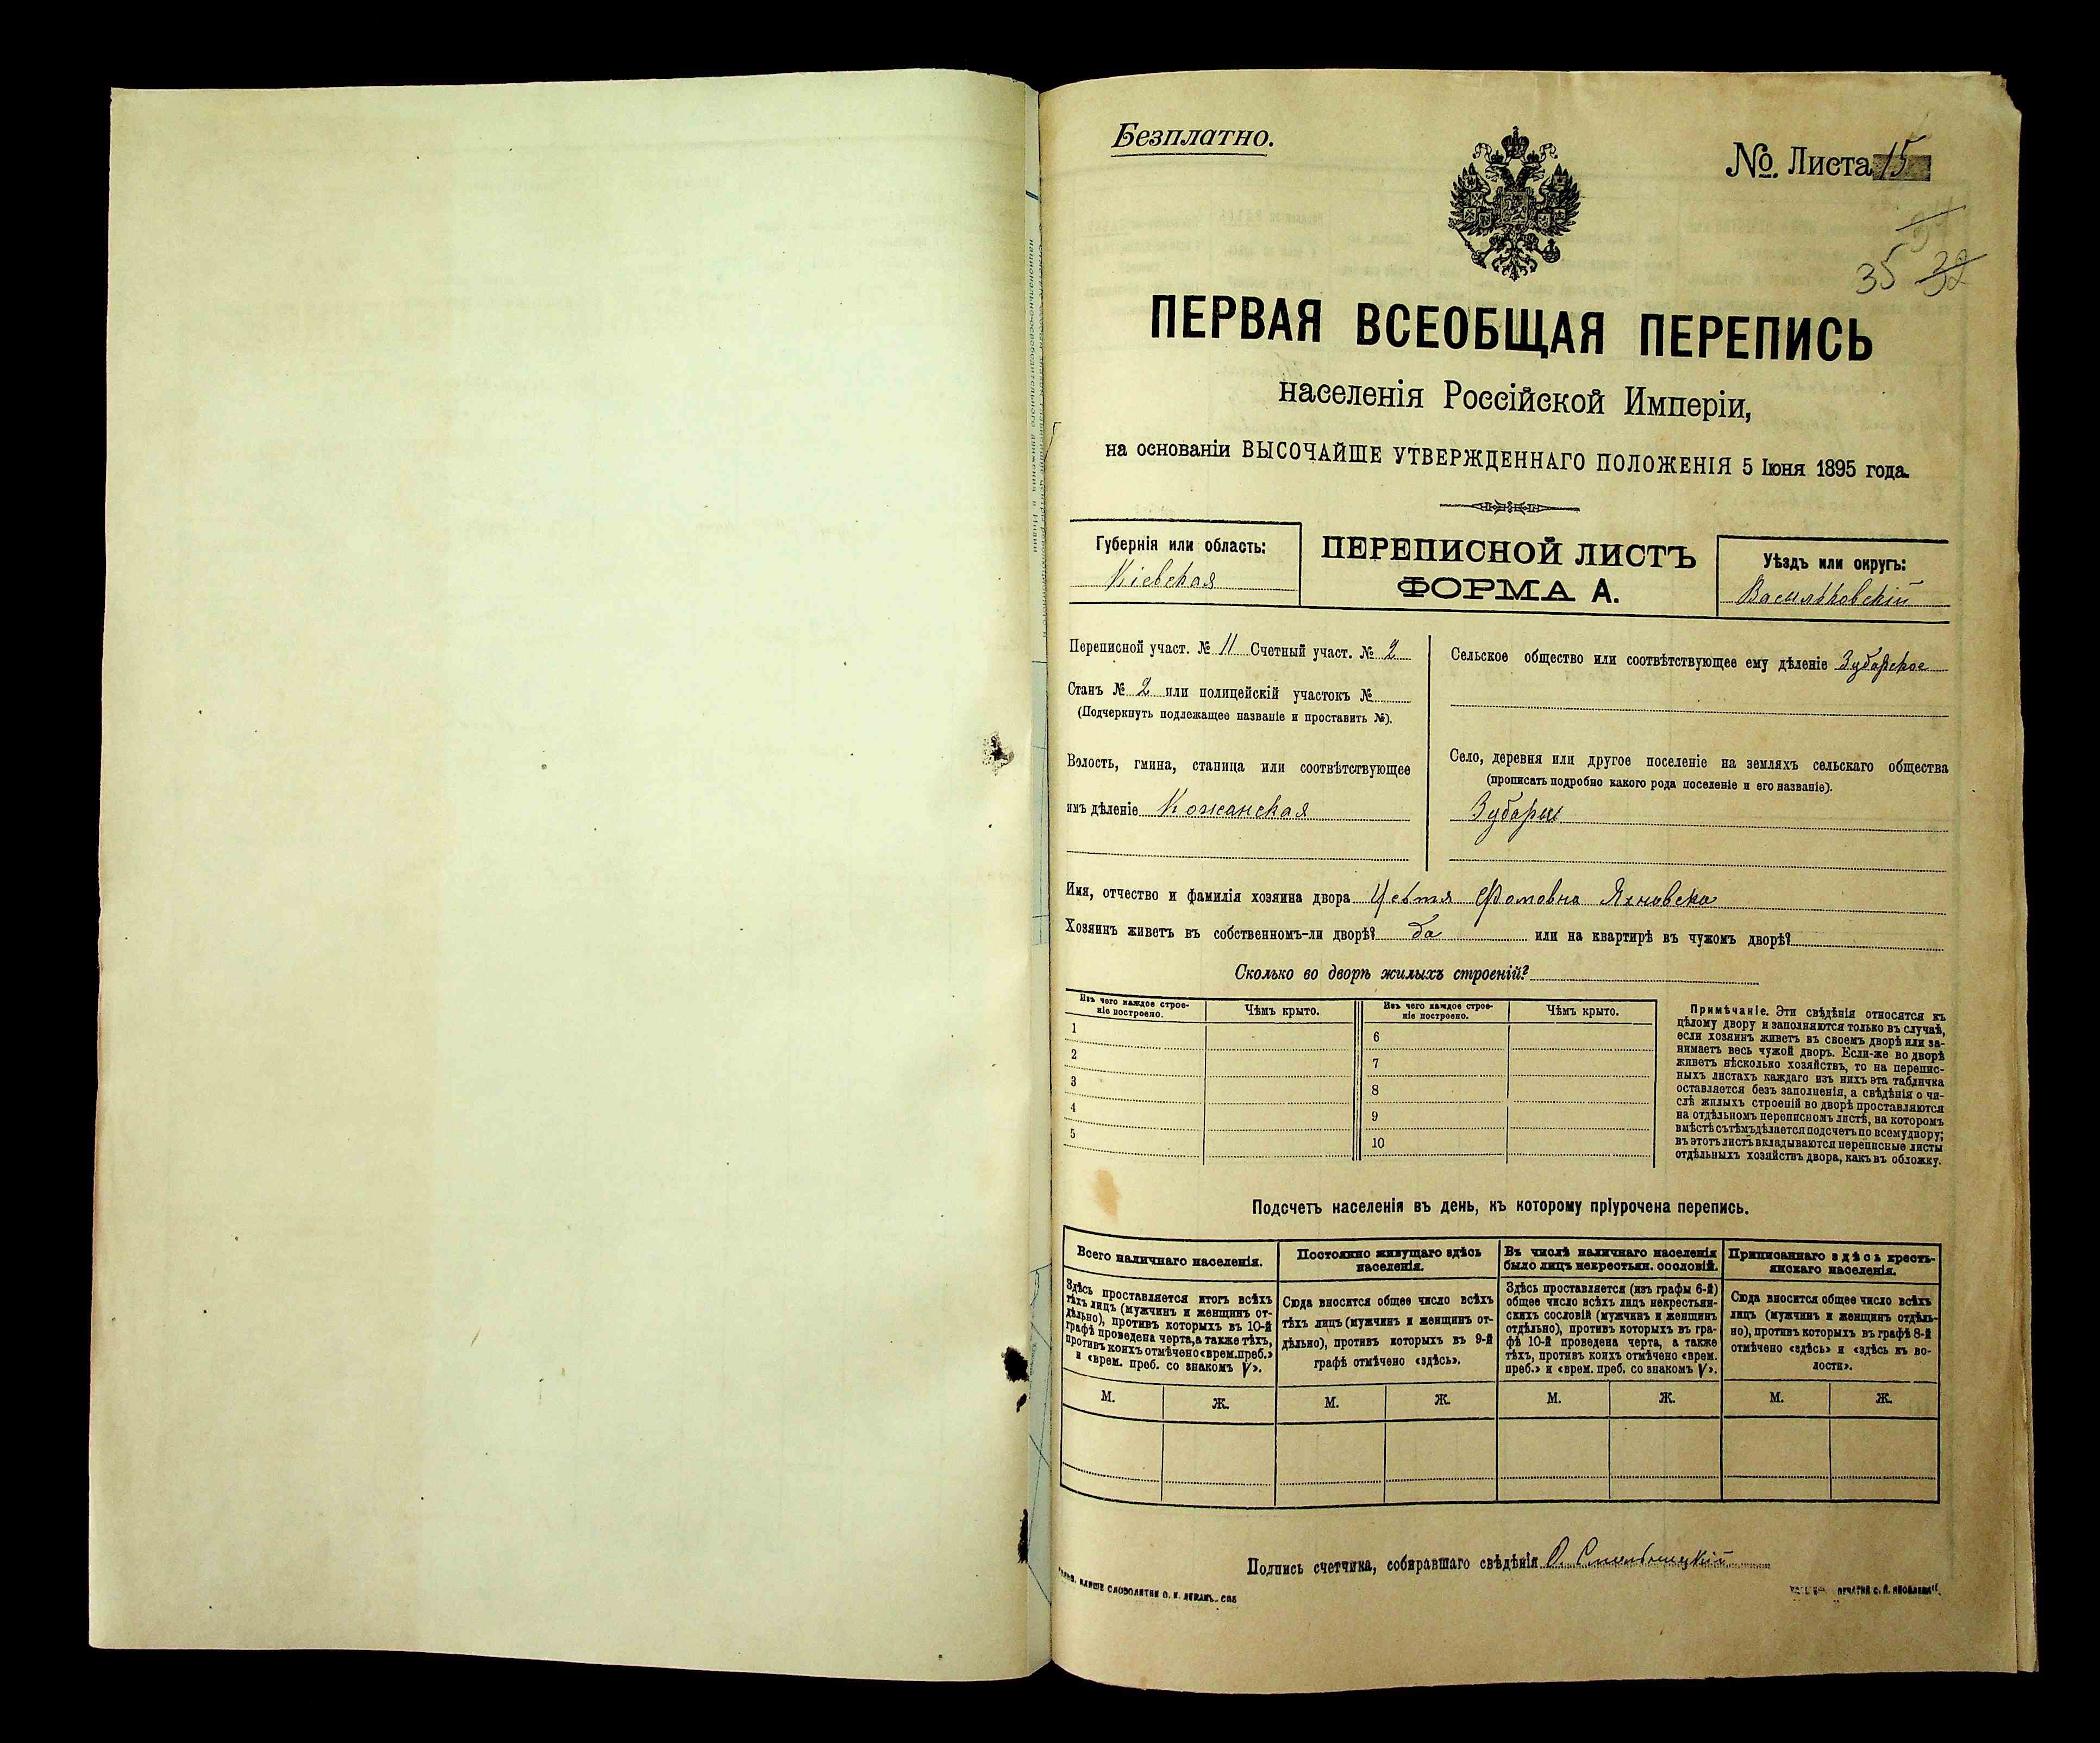 Безплатно.
№. Листа 15
35 32
ПЕРВАЯ ВСЕОБЩАЯ ПЕРЕПИСЬ
населенія Россійской Имперіи,
на основаніи ВЫСОЧАЙШЕ УТВЕРЖДЕННАГО ПОЛОЖЕНІЯ 5 Іюня 1895 года.
Губернія или область:
Кіевская
ПЕРЕПИСНОЙ ЛИСТЪ
ФОРМА А.
Уѣздъ или округъ:
Васильковскій
Переписной участ. № 11 Счетный участ. № 2
Станъ № 2 или полицейскій участокъ №
(Подчеркнуть подлежащее названіе и проставить №).
Волость, гмина, станица или соотвѣтствующее
имъ дѣленіе Кожанская
Сельское общество или соотвѣтствующее ему дѣленіе Зубарское
Село, деревня или другое поселеніе на земляхъ сельскаго общества
(прописать подробно какого рода поселеніе и его названіе).
Зубары
Имя, отчество и фамилія хозяина двора Фомовна Яхновска
Хозяинъ живетъ въ собственномъ-ли дворѣ? да или на квартирѣ въ чужомъ дворѣ?
Сколько во дворѣ жилыхъ строеній?
Изъ чего каждое строе-
ніе построено.
Чѣмъ крыто.
Изъ чего каждое строе-
ніе построено.
Чѣмъ крыто.
1
2
3
4
5
6
7
8
9
10
Примѣчаніе. Эти свѣдѣнія относятся къ
цѣлому двору и заполняются только въ случаѣ,
если хозяинъ живетъ въ своемъ дворѣ или за-
нимаетъ весь чужой дворъ. Если-же во дворѣ
живетъ нѣсколько хозяйствъ, то на перепис-
ныхъ листахъ каждаго изъ нихъ эта табличка
оставляется безъ заполненія, а свѣдѣнія о чи-
слѣ жилыхъ строеній во дворѣ проставляются
на отдѣльномъ переписномъ листѣ, на которомъ
вмѣстѣ съ тѣмъ дѣлается подсчетъ по всему двору;
въ этотъ листъ вкладываются переписные листы
отдѣльныхъ хозяйствъ двора, какъ въ обложку.
Подсчетъ населенія въ день, къ которому пріурочена перепись.
Всего наличнаго населенія.
Здѣсь проставляется итогъ всѣхъ
тѣхъ лицъ (мужчинъ и женщинъ от-
дѣльно), противъ которыхъ въ 10-й
графѣ проведена черта, а также тѣхъ,
противъ коихъ отмѣчено «врем. преб.»
и «врем. преб. со знакомъ V».
Постоянно живущаго здѣсь
населенія.
Сюда вносится общее число всѣхъ
тѣхъ лицъ (мужчинъ и женщинъ от-
дѣльно), противъ которыхъ въ 9-й
графѣ отмѣчено «здѣсь».
Въ числѣ наличнаго населенія
было лицъ некрестьян. сословій.
Здѣсь проставляется (изъ графы 6-й)
общее число всѣхъ лицъ некрестьян-
скихъ сословій (мужчинъ и женщинъ
отдѣльно), противъ которыхъ въ гра-
фѣ 10-й проведена черта, а также
тѣхъ, противъ коихъ отмѣчено «врем.
преб.» и «врем. преб. со знакомъ V».
Приписаннаго здѣсь кресть-
янскаго населенія.
Сюда вносится общее число всѣхъ
лицъ (мужчинъ и женщинъ отдѣль-
но), противъ которыхъ въ графѣ 8-й
отмѣчено «здѣсь» и «здѣсь къ во-
лости».
М. Ж. М. Ж. М. Ж. М. Ж.
Подпись счетчика, собиравшаго свѣдѣнія